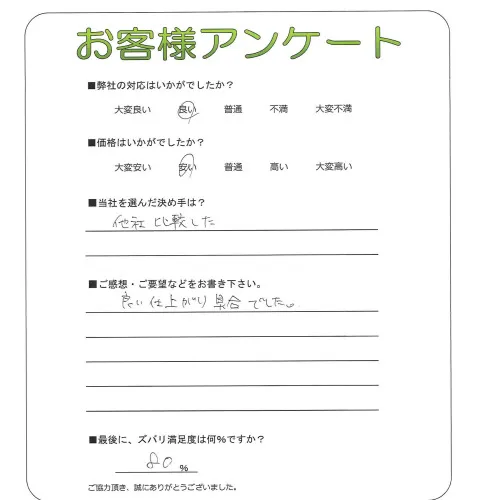 お客様アンケート
■弊社の対応はいかがでしたか？
大変良い 良い 普通 不満 大変不満
■価格はいかがでしたか？
大変安い 安い 普通 高い 大変高い
■当社を選んだ決め手は？
他社比較した
■ご感想・ご要望などをお書き下さい。
良い仕上がり具合でした。
■最後に、ズバリ満足度は何%ですか？
80 %
ご協力頂き、誠にありがとうございました。